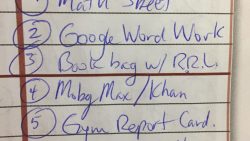 ① Math Sheet
② Google Word Work
③ Book bag w/ R.R.L.
④ Mobymax/Khan
⑤ Gym Report Card.